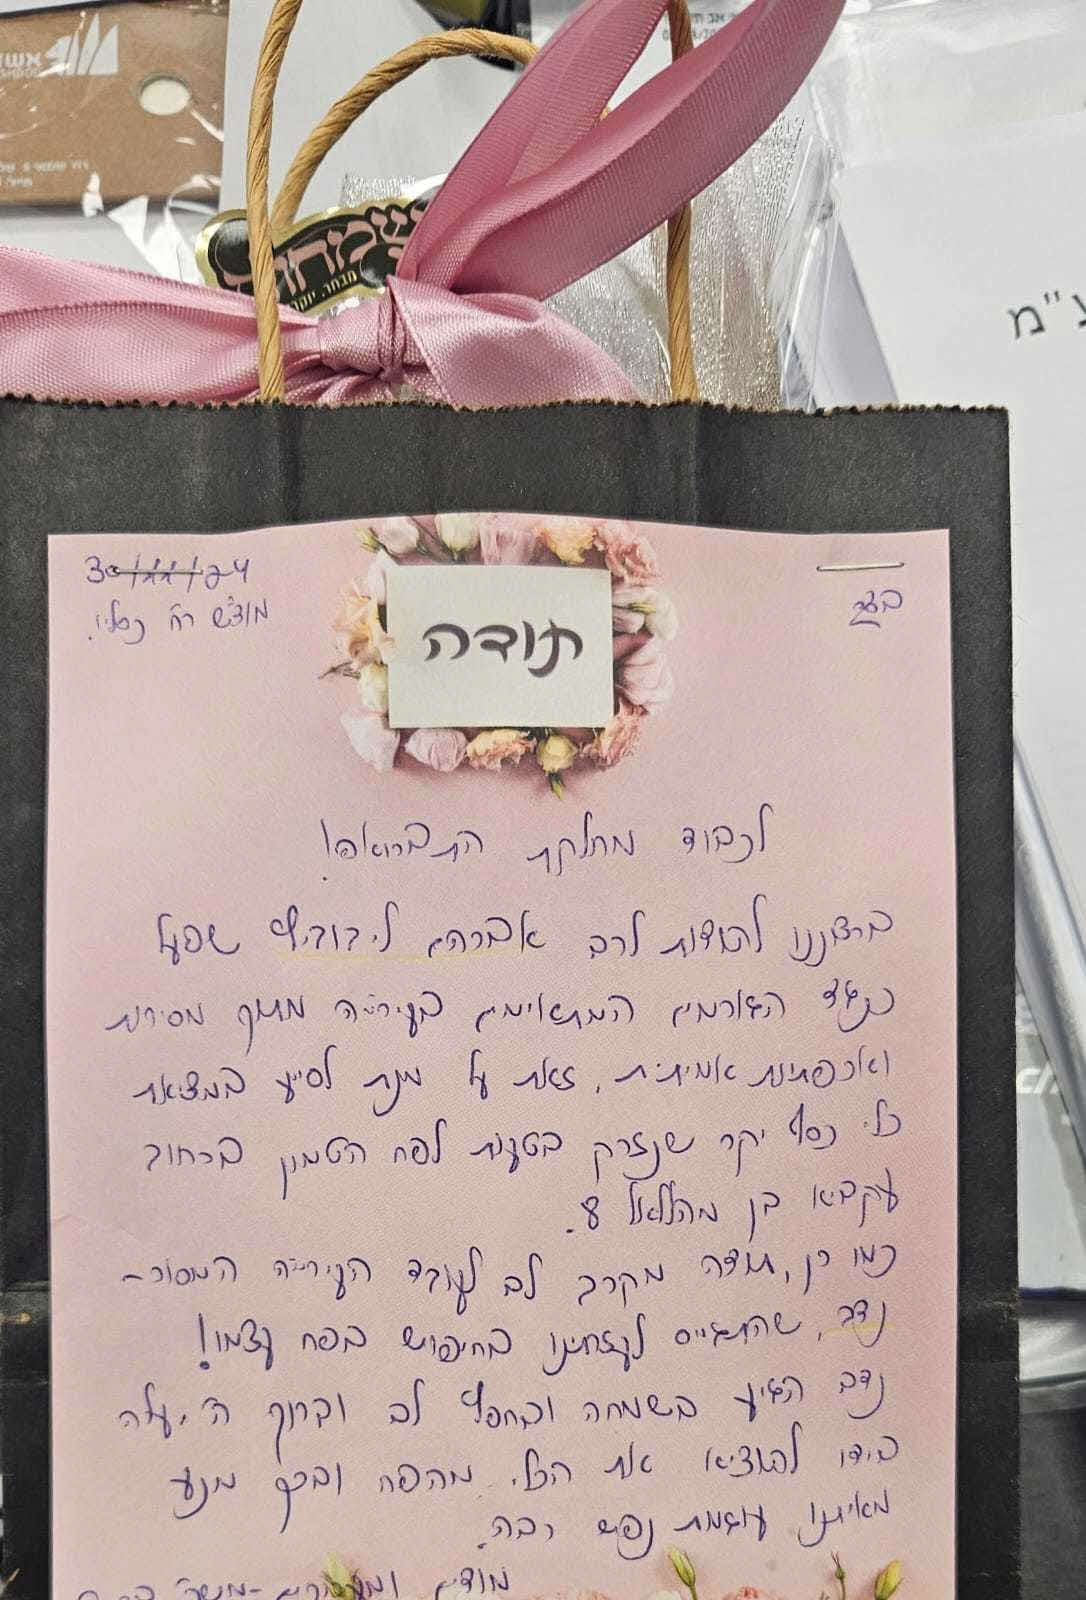 אשד
ע"מ
שמחת
מבחר. יוקר
30/11/24
מוצ"ש ר"ח כסליו.
בס"ד
תודה
לכבוד מחלקת התברואה!
ברצוננו להודות לרב אברהם ליבוביץ שפעל
כנגד הגורמים המתאימים בעירייה מתוך מסירות
ואכפתיות אמיתית, זאת על מנת לסייע במציאת
כלי כסף יקר שנזרק בטעות לפח הטמון ברחוב
עקביא בן מהללאל 8.
כמו כן, תודה מקרב לב לעובד העירייה המסור -
נדב, שהתגייס לעזרתינו בחיפוש בפח עצמו!
נדב הגיע בשמחה ובחפץ לב וברוך ה' עלה
בידו להוציא את הכלי מהפח ובכך מנע
מאיתנו עוגמת נפש רבה.
מודים ומעריכים - משפ'